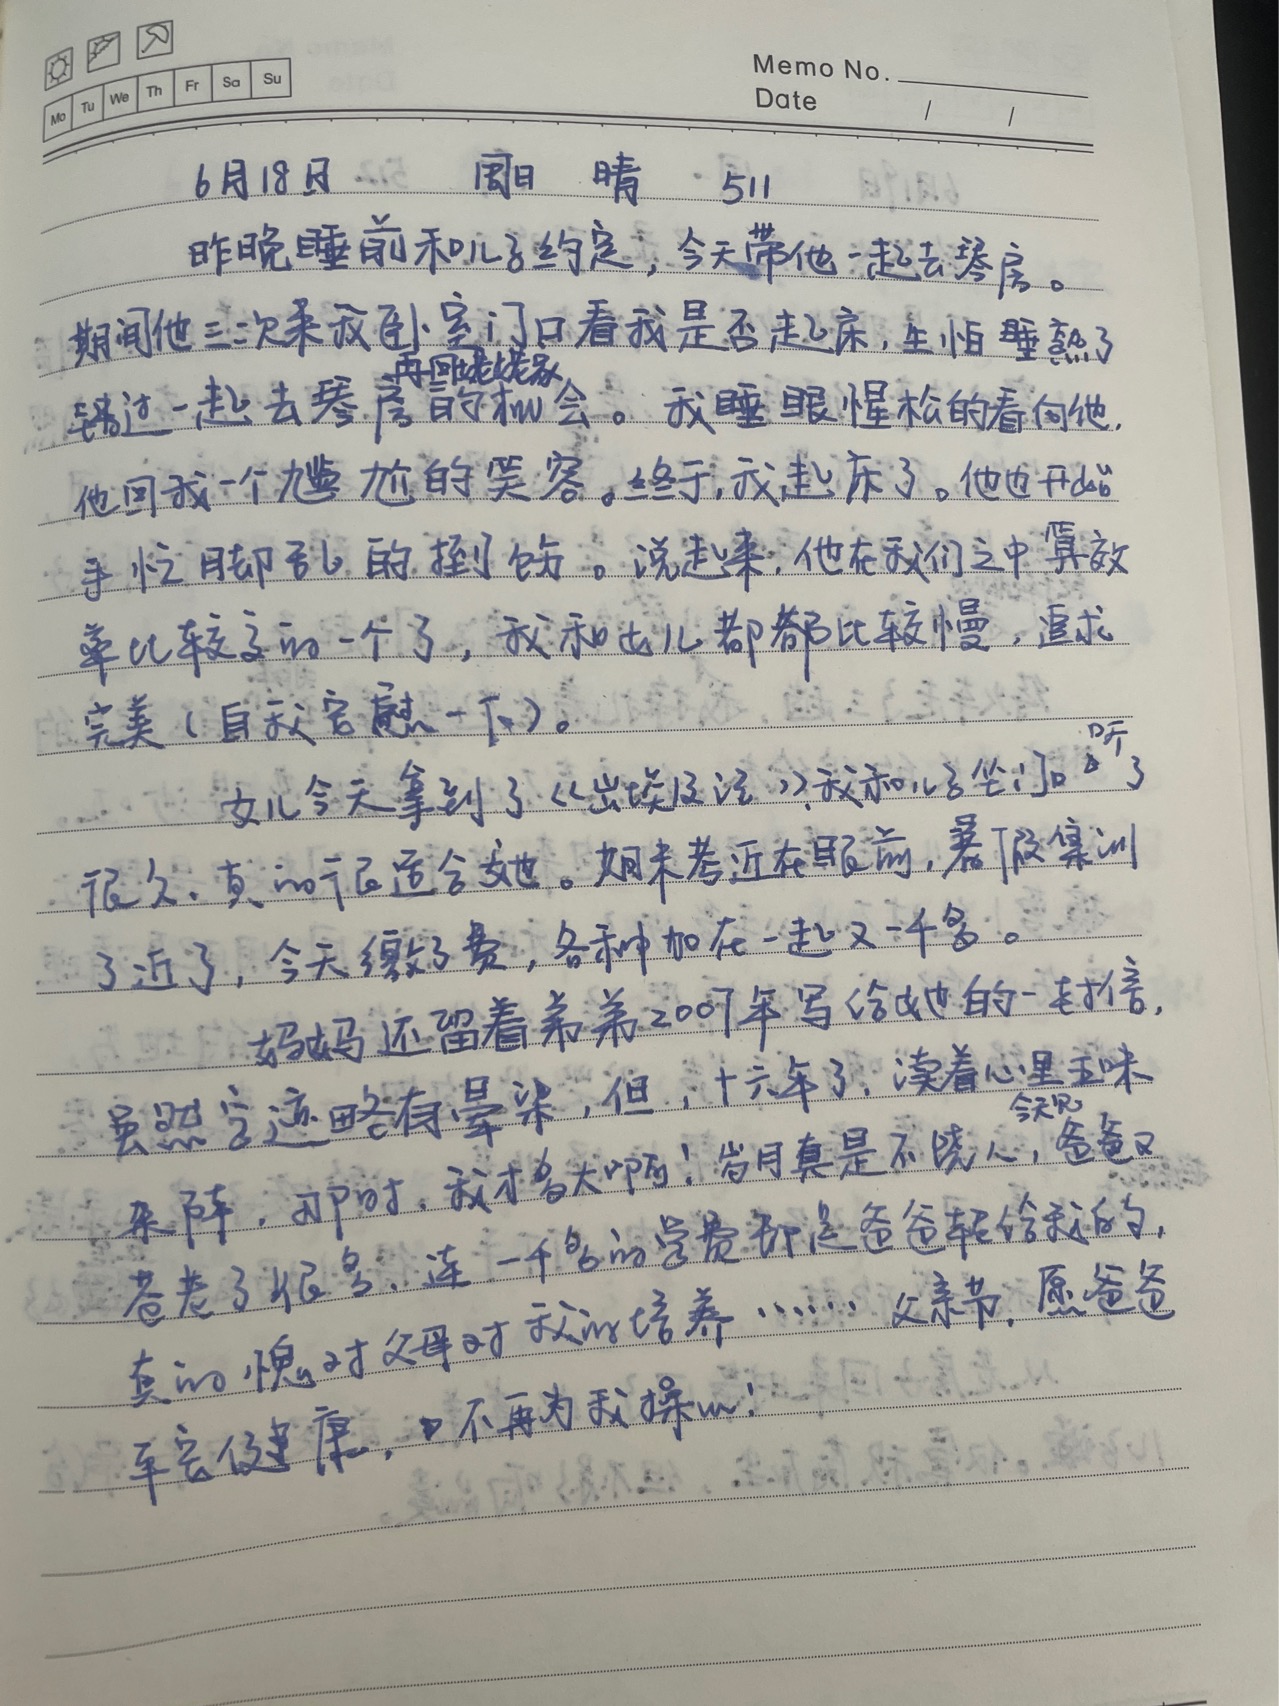 Mo Tu We Th Fr Sa Su
Memo No.
Date / /
6月18日 周日 晴 511
昨晚睡前和儿子约定，今天带他一起去琴房。
期间他三二次来我卧室门口看我是否起床，生怕睡熟了
再回姥姥家
错过一起去琴房的机会。我睡眼惺松的看向他，
他回我一个尴尬的笑容。终于，我起床了。他也开始
手忙脚乱的捯饬。说起来，他在我们之中算效
率比较高的一个了，我和女儿都都比较慢，追求
完美（自我安慰一下）。
女儿今天拿到了《出埃及记》，我和儿子坐门口听了
很久，真的很适合她。期末考近在眼前，暑假集训
了近了，今天缴了费，各种加在一起又一千多。
妈妈还留着弟弟2007年写给她的一封信，
虽然字迹略有晕染，但，十六年了，读着心里五味
今天见
杂陈，那时，我才多大啊！岁月真是不饶人，爸爸又
苍老了很多，连一千多的学费都是爸爸转给我的，
真的愧对父母对我的培养……父亲节，愿爸爸
平安健康，不再为我操心！